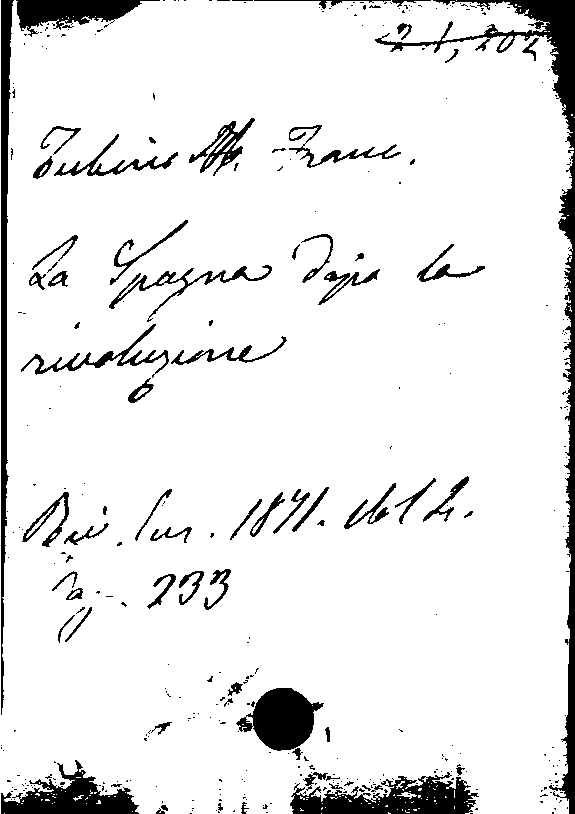 21,202
Tubino M. Franc.
La Spagna dopo la
rivoluzione
Riv. Eur. 1871. Vol 2.
Pag. 233